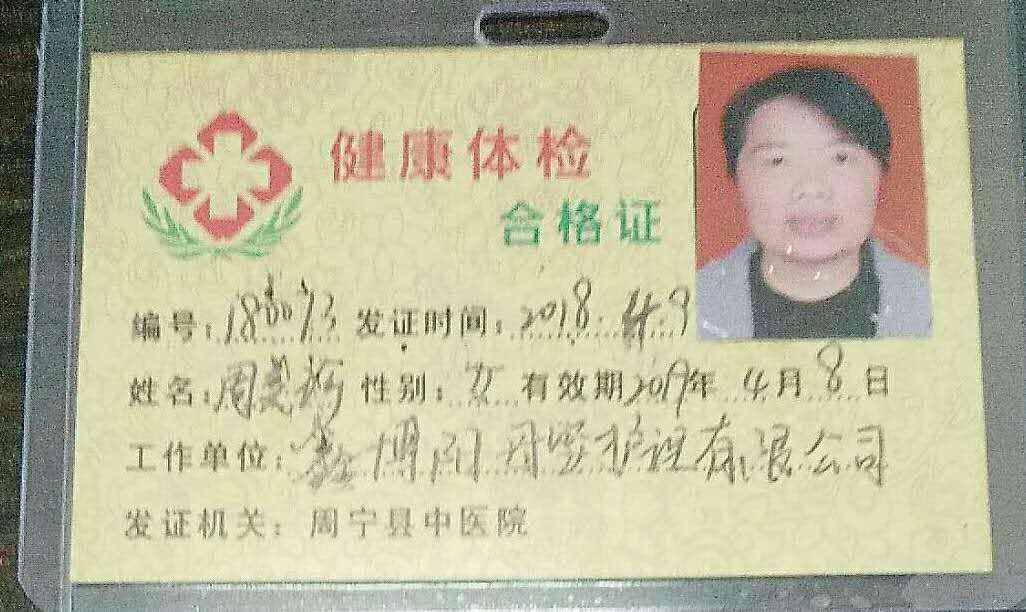 健康体检
合格证
编号: 180073 发证时间: 2018.4.9
姓名: 周美 性别: 女 有效期2019年 4月 8日
工作单位: 博阳母婴护理有限公司
发证机关: 周宁县中医院